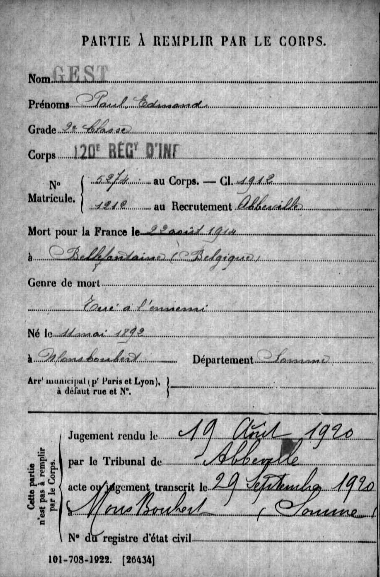 PARTIE À REMPLIR PAR LE CORPS.
Nom GEST
Prénoms Paul, Edmond
Grade 2e Classe
Corps 120e REGt D'INF
No Matricule. { 5274 au Corps. — Cl. 1912
1212 au Recrutement Abbeville
Mort pour la France le 22 août 1914
à Bellefontaine (Belgique)
Genre de mort
Tué à l'ennemi
Né le 11 mai 1892
à Mons boubert Département Somme
Arrt municipal (pr Paris et Lyon), à défaut rue et No. }
Cette partie n'est pas à remplir par le Corps.
Jugement rendu le 19 Août 1920
par le Tribunal de Abbeville
acte ou jugement transcrit le 29 Septembre 1920
à Mons Boubert (Somme)
No du registre d'état civil
101-708-1922. [26434]